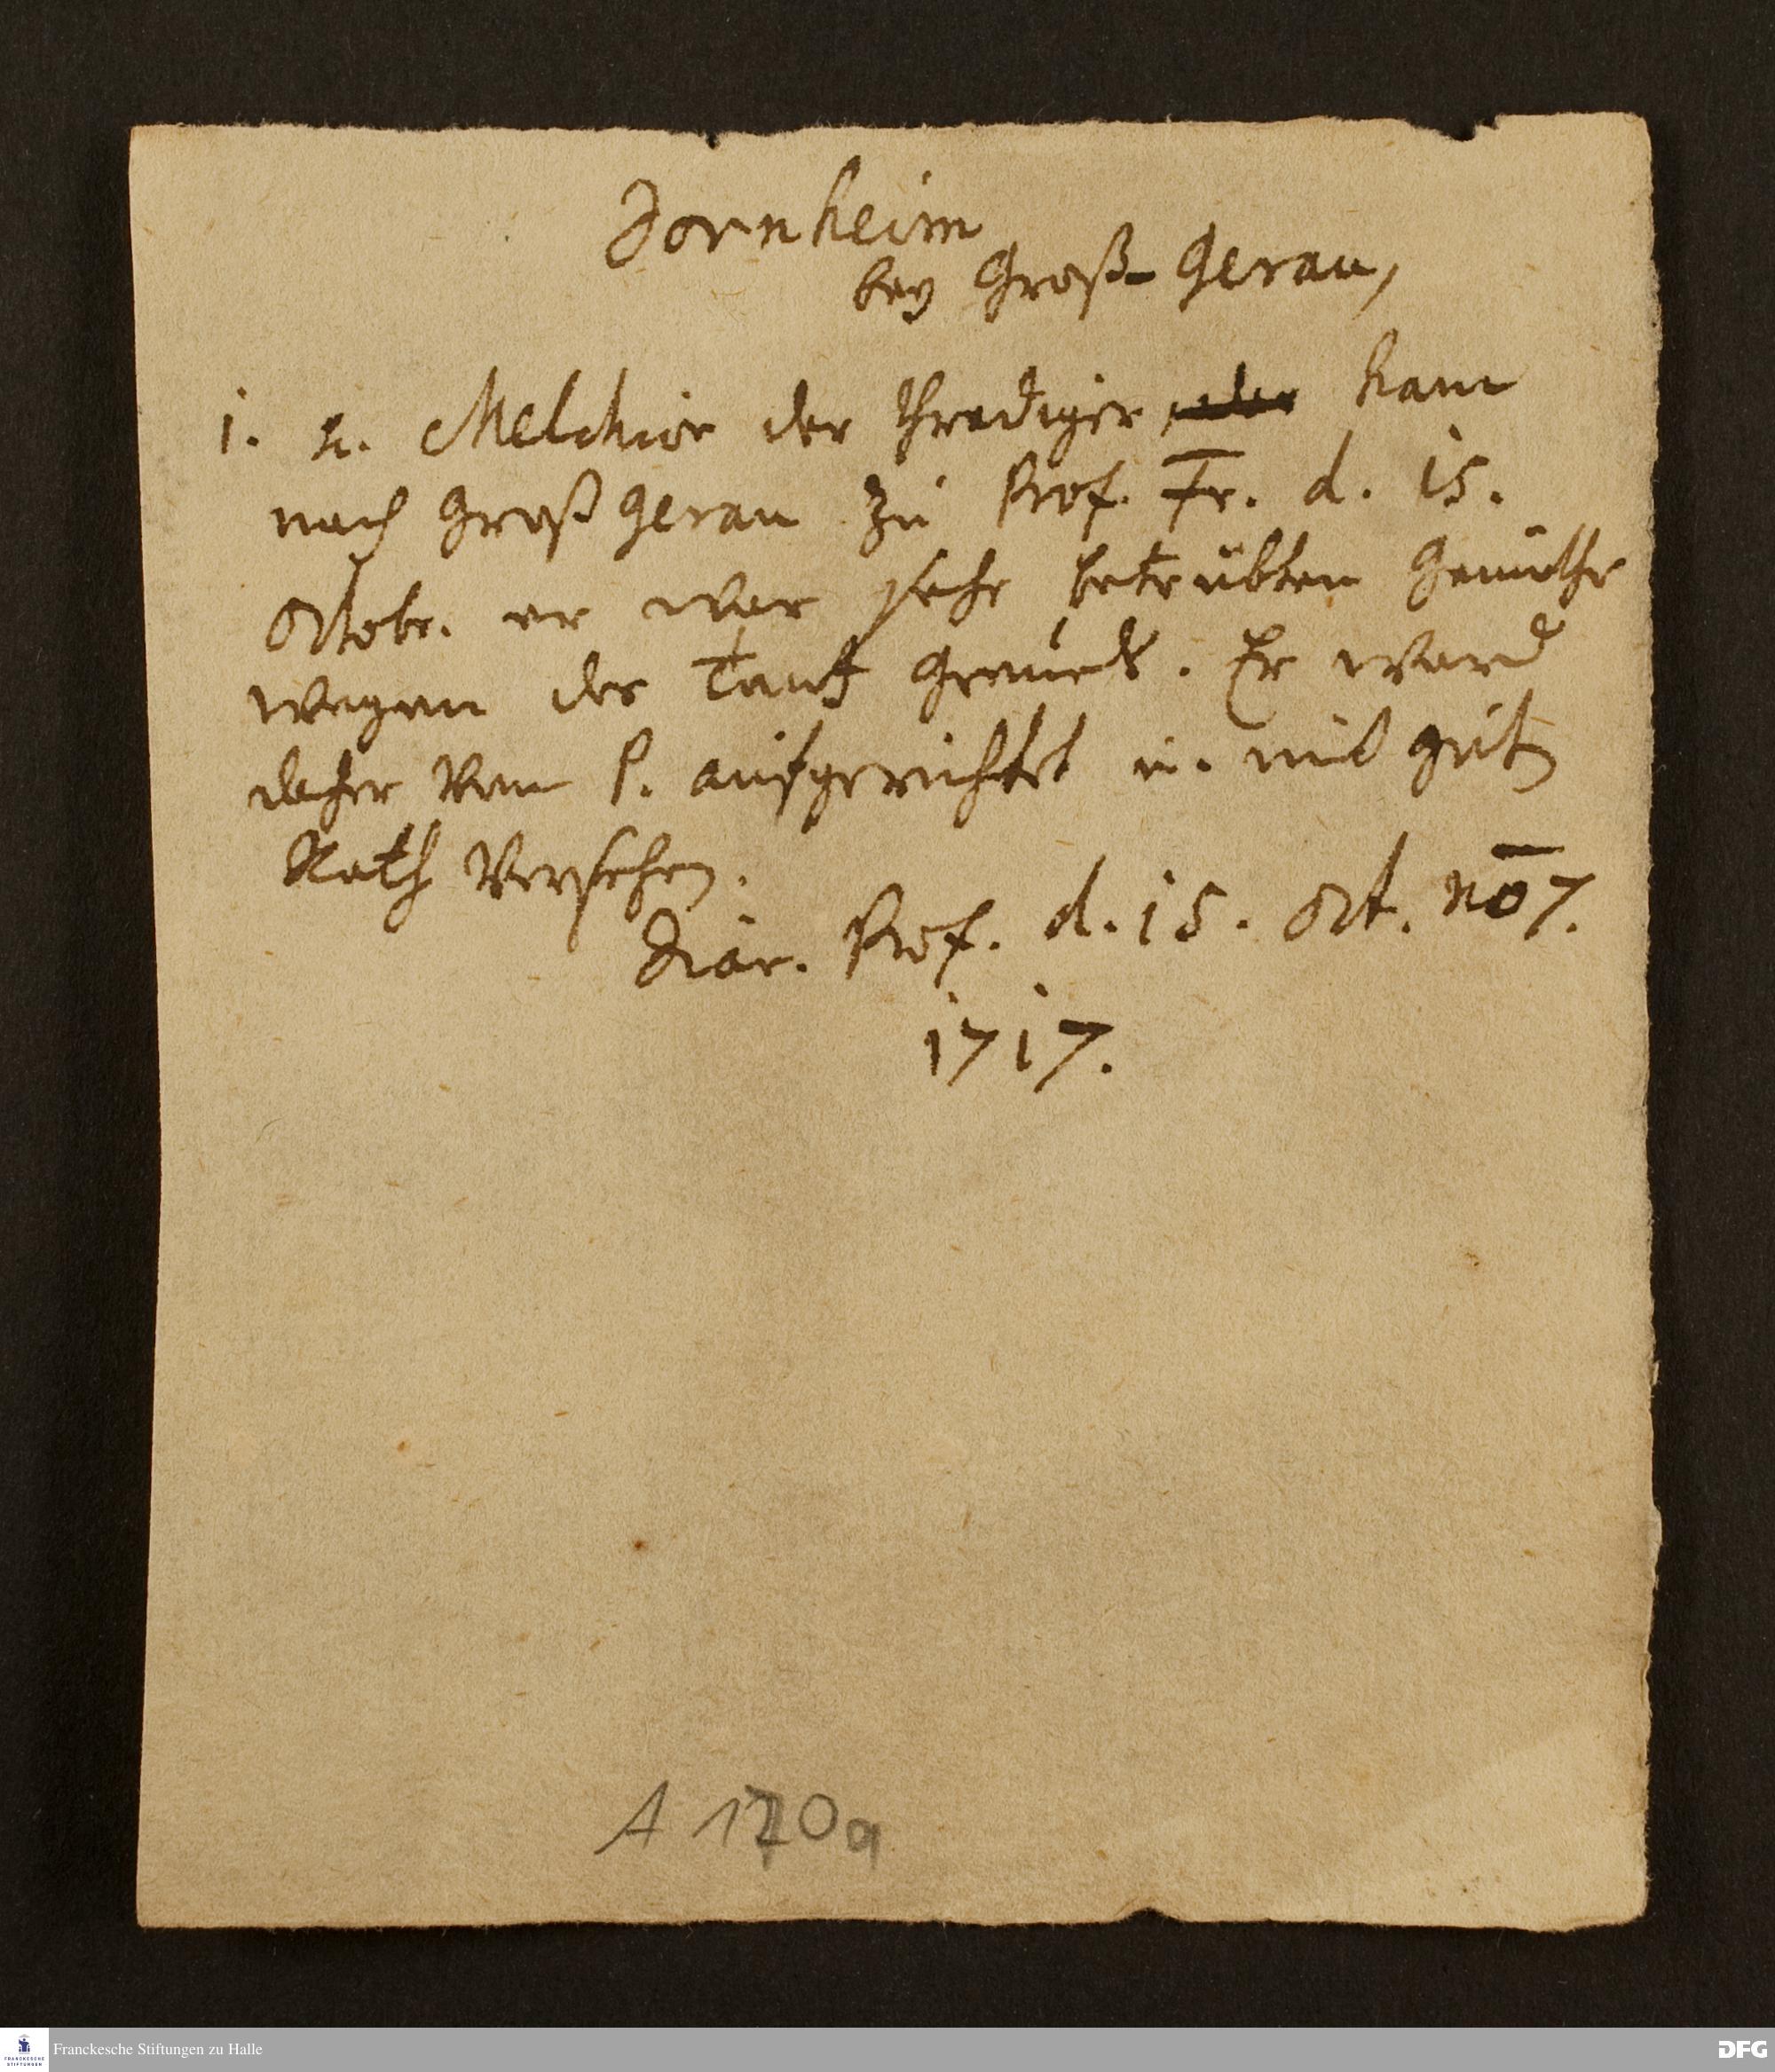 Dornheim
bey Groß-Gerau,
1. H. Melchior der Prediger kam
nach Großgerau zu Prof. Fr. d. 15.
Octobr. er war sehr betrübten Gemüths
wegen des Tantz Greuels. Er ward
daher vom P. aufgerichtet u. mit gut
Rath versehen.
Diar. Prof. d. 15. Oct. no 7.
1717.
A 170a
Franckesche Stiftungen zu Halle
FRANCKESCHE
STIFTUNGEN
DFG